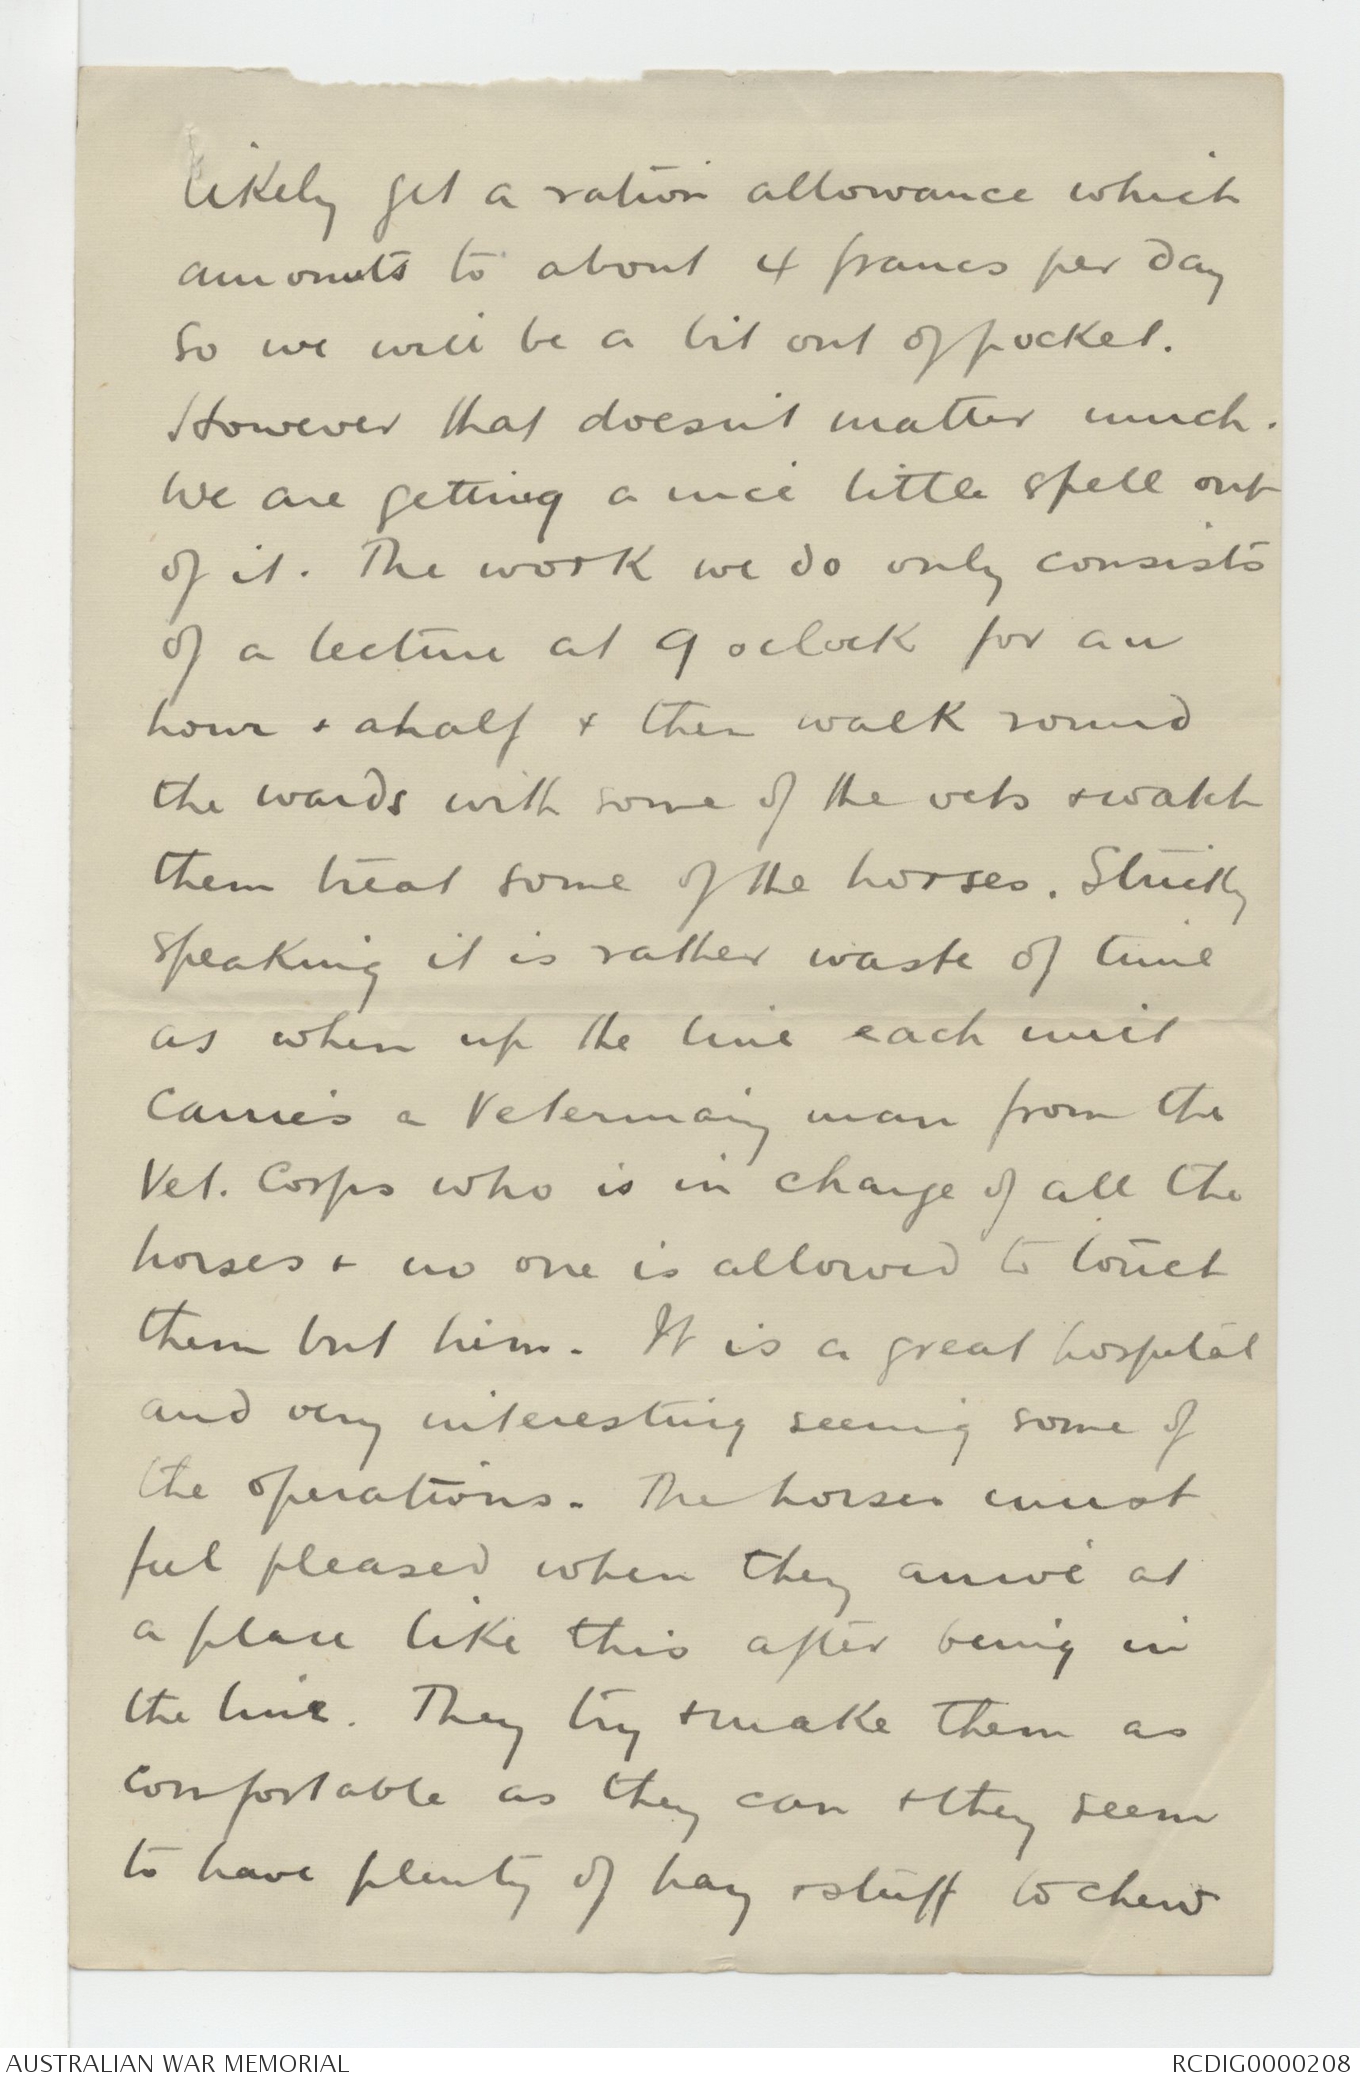 likely get a ration allowance which
amounts to about 4 francs per day
so we will be a bit out of pocket.
However that doesn't matter much.
We are getting a nice little spell out
of it. The work we do only consists
of a lecture at 9 oclock for an
hour + a half + then walk round
the wards with some of the vets + watch
them treat some of the horses. Strictly
speaking it is rather waste of time
as when up the line each unit
carries a Veterinary man from the
Vet. Corps who is in charge of all the
horses + no one is allowed to touch
them but him. It is a great hospital
and very interesting seeing some of
the operations. The horses must
feel pleased when they arrive at
a place like this after being in
the line. They try + make them as
comfortable as they can + they seem
to have plenty of hay + stuff to chew
AUSTRALIAN WAR MEMORIAL
RCDIG0000208